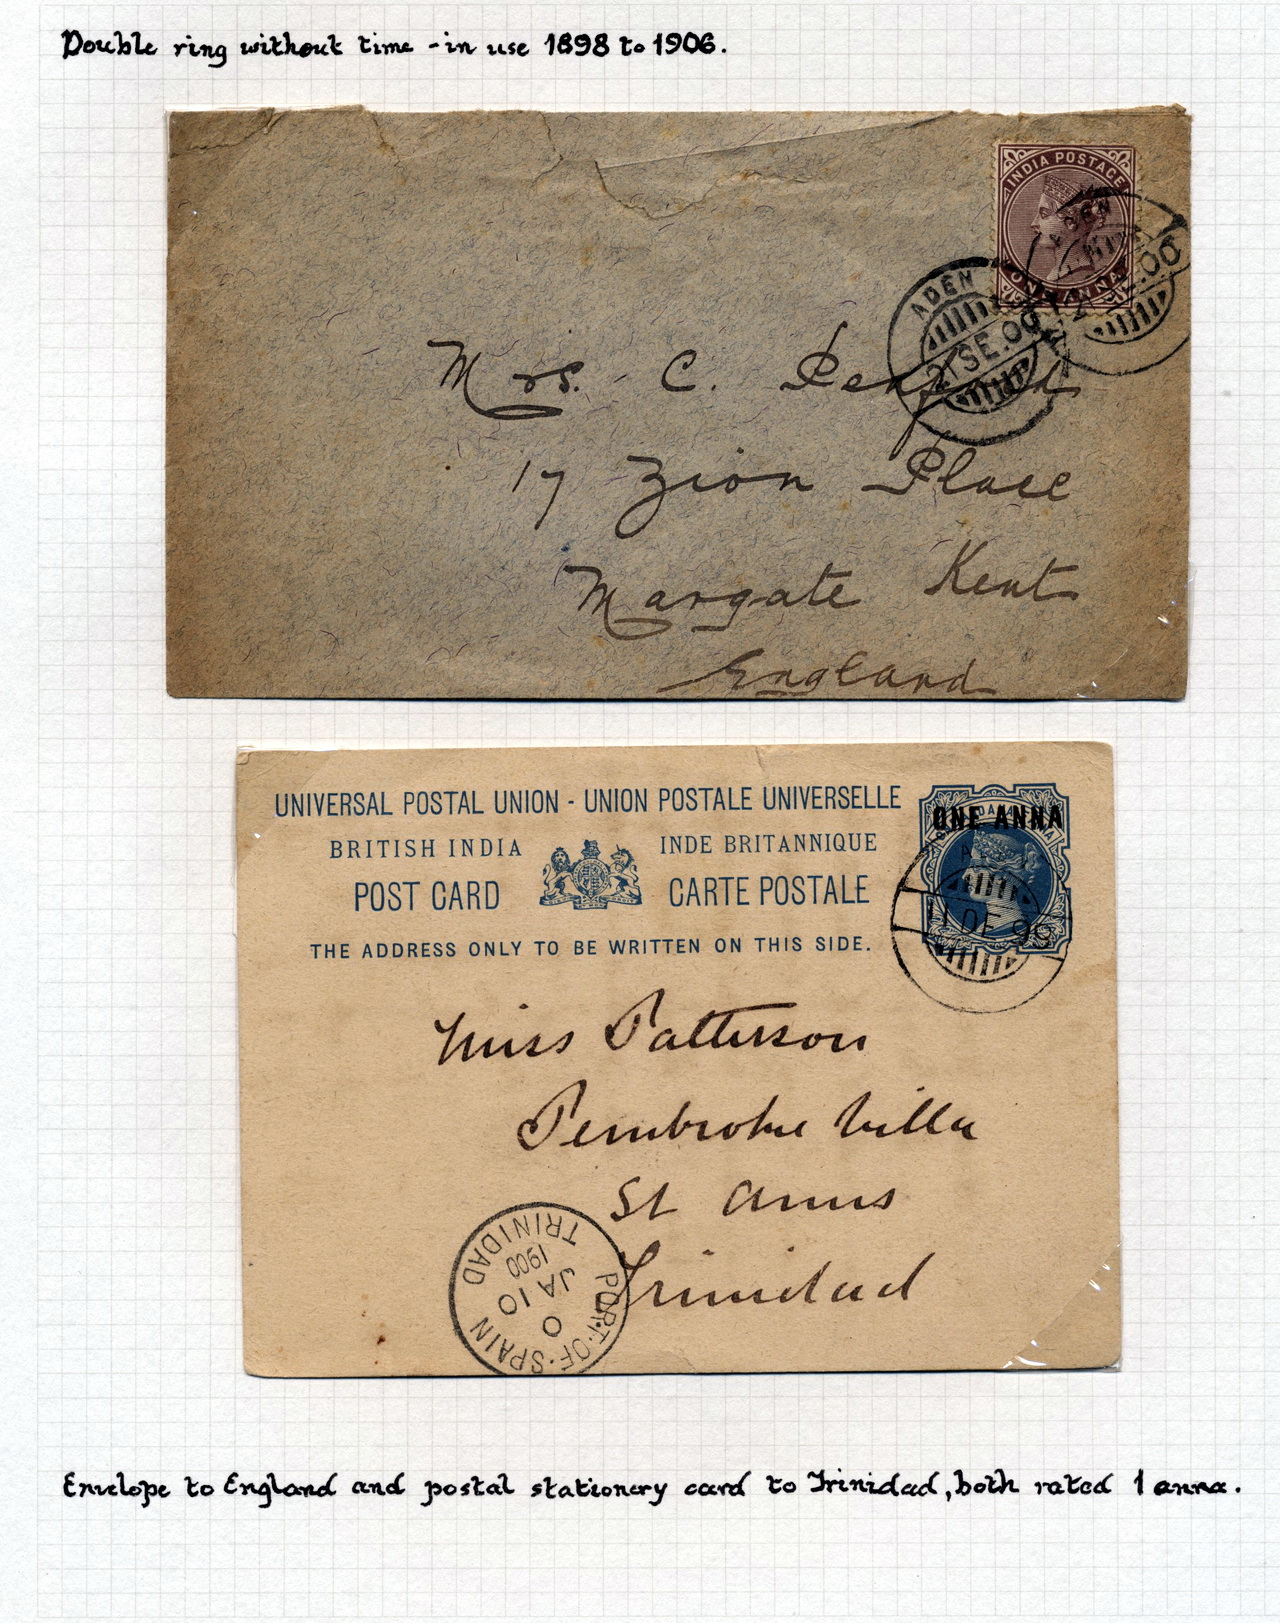 Double ring without time - in use 1898 to 1906.
INDIA POSTAGE
ONE ANNA
ADEN
21 SE.00
ADEN
SE.00
Mrs. C.
17 Zion Place
Margate Kent
England
UNIVERSAL POSTAL UNION - UNION POSTALE UNIVERSELLE
BRITISH INDIA INDE BRITANNIQUE
POST CARD CARTE POSTALE
THE ADDRESS ONLY TO BE WRITTEN ON THIS SIDE.
ONE ANNA
11 DE.99
Miss Patterson
Pembroke Villa
St Anns
Trinidad
PORT-OF-SPAIN
O
JA 10
1900
TRINIDAD
Envelope to England and postal stationery card to Trinidad, both rated 1 anna.